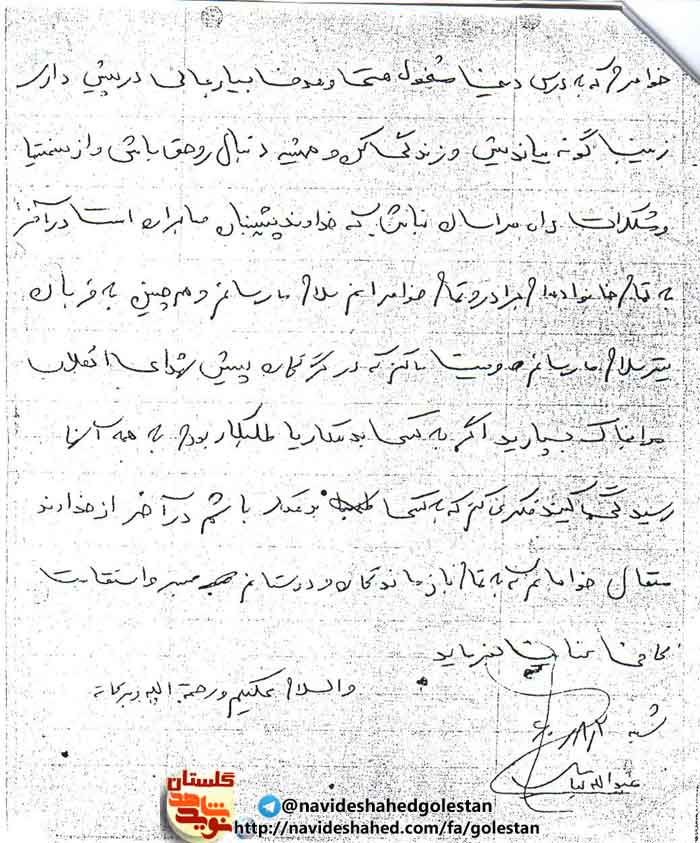 خواهرم که به درس دینی مشغول هستی و هدف بسیار عالی در پیش داری
زینب گونه بیاندیش و زندگی کن و همیشه دنبال روحق باش و از سختیها
و مشکلات راه هراسان نباش که خداوند پشتیبان ماهران است در آخر
به تمام خانواده‌ام برادر و تمام خواهرانم سلام می رسانم و همچنین به قربان
سلام می رسانم وصیت می کنم که در گرگان پیش شهدای انقلاب
مرا بخاک بسپارید اگر به کسی بدهکار یا طلبکار بودم به همه آنها
رسیدگی کنید فکر نمی کنم که به کسی بدهکار باشم در آخر از خداوند
متعال خواهانم که به تمام بازماندگان و دوستانم صبر و استقامت
کافی عنایت بفرماید
والسلام علیکم و رحمة الله و برکاته
شنبه ۶۰/۸/۲
عبدالله
گلستان
نوید شاهد
@navideshahedgolestan
http://navideshahed.com/fa/golestan